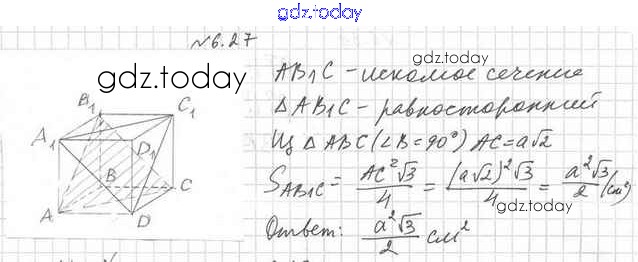 gdz.today
№6.27
gdz.today
gdz.today
AB₁C - искомое сечение
ΔAB₁C - равносторонний
Из ΔABC (∠B=90°) AC=a√2
S_AB₁C = AC²√3/4 = (a√2)²√3/4 = a²√3/2 (см²)
gdz.today
Ответ: a²√3/2 см²
B₁ C₁
A₁ D₁
B C
A D